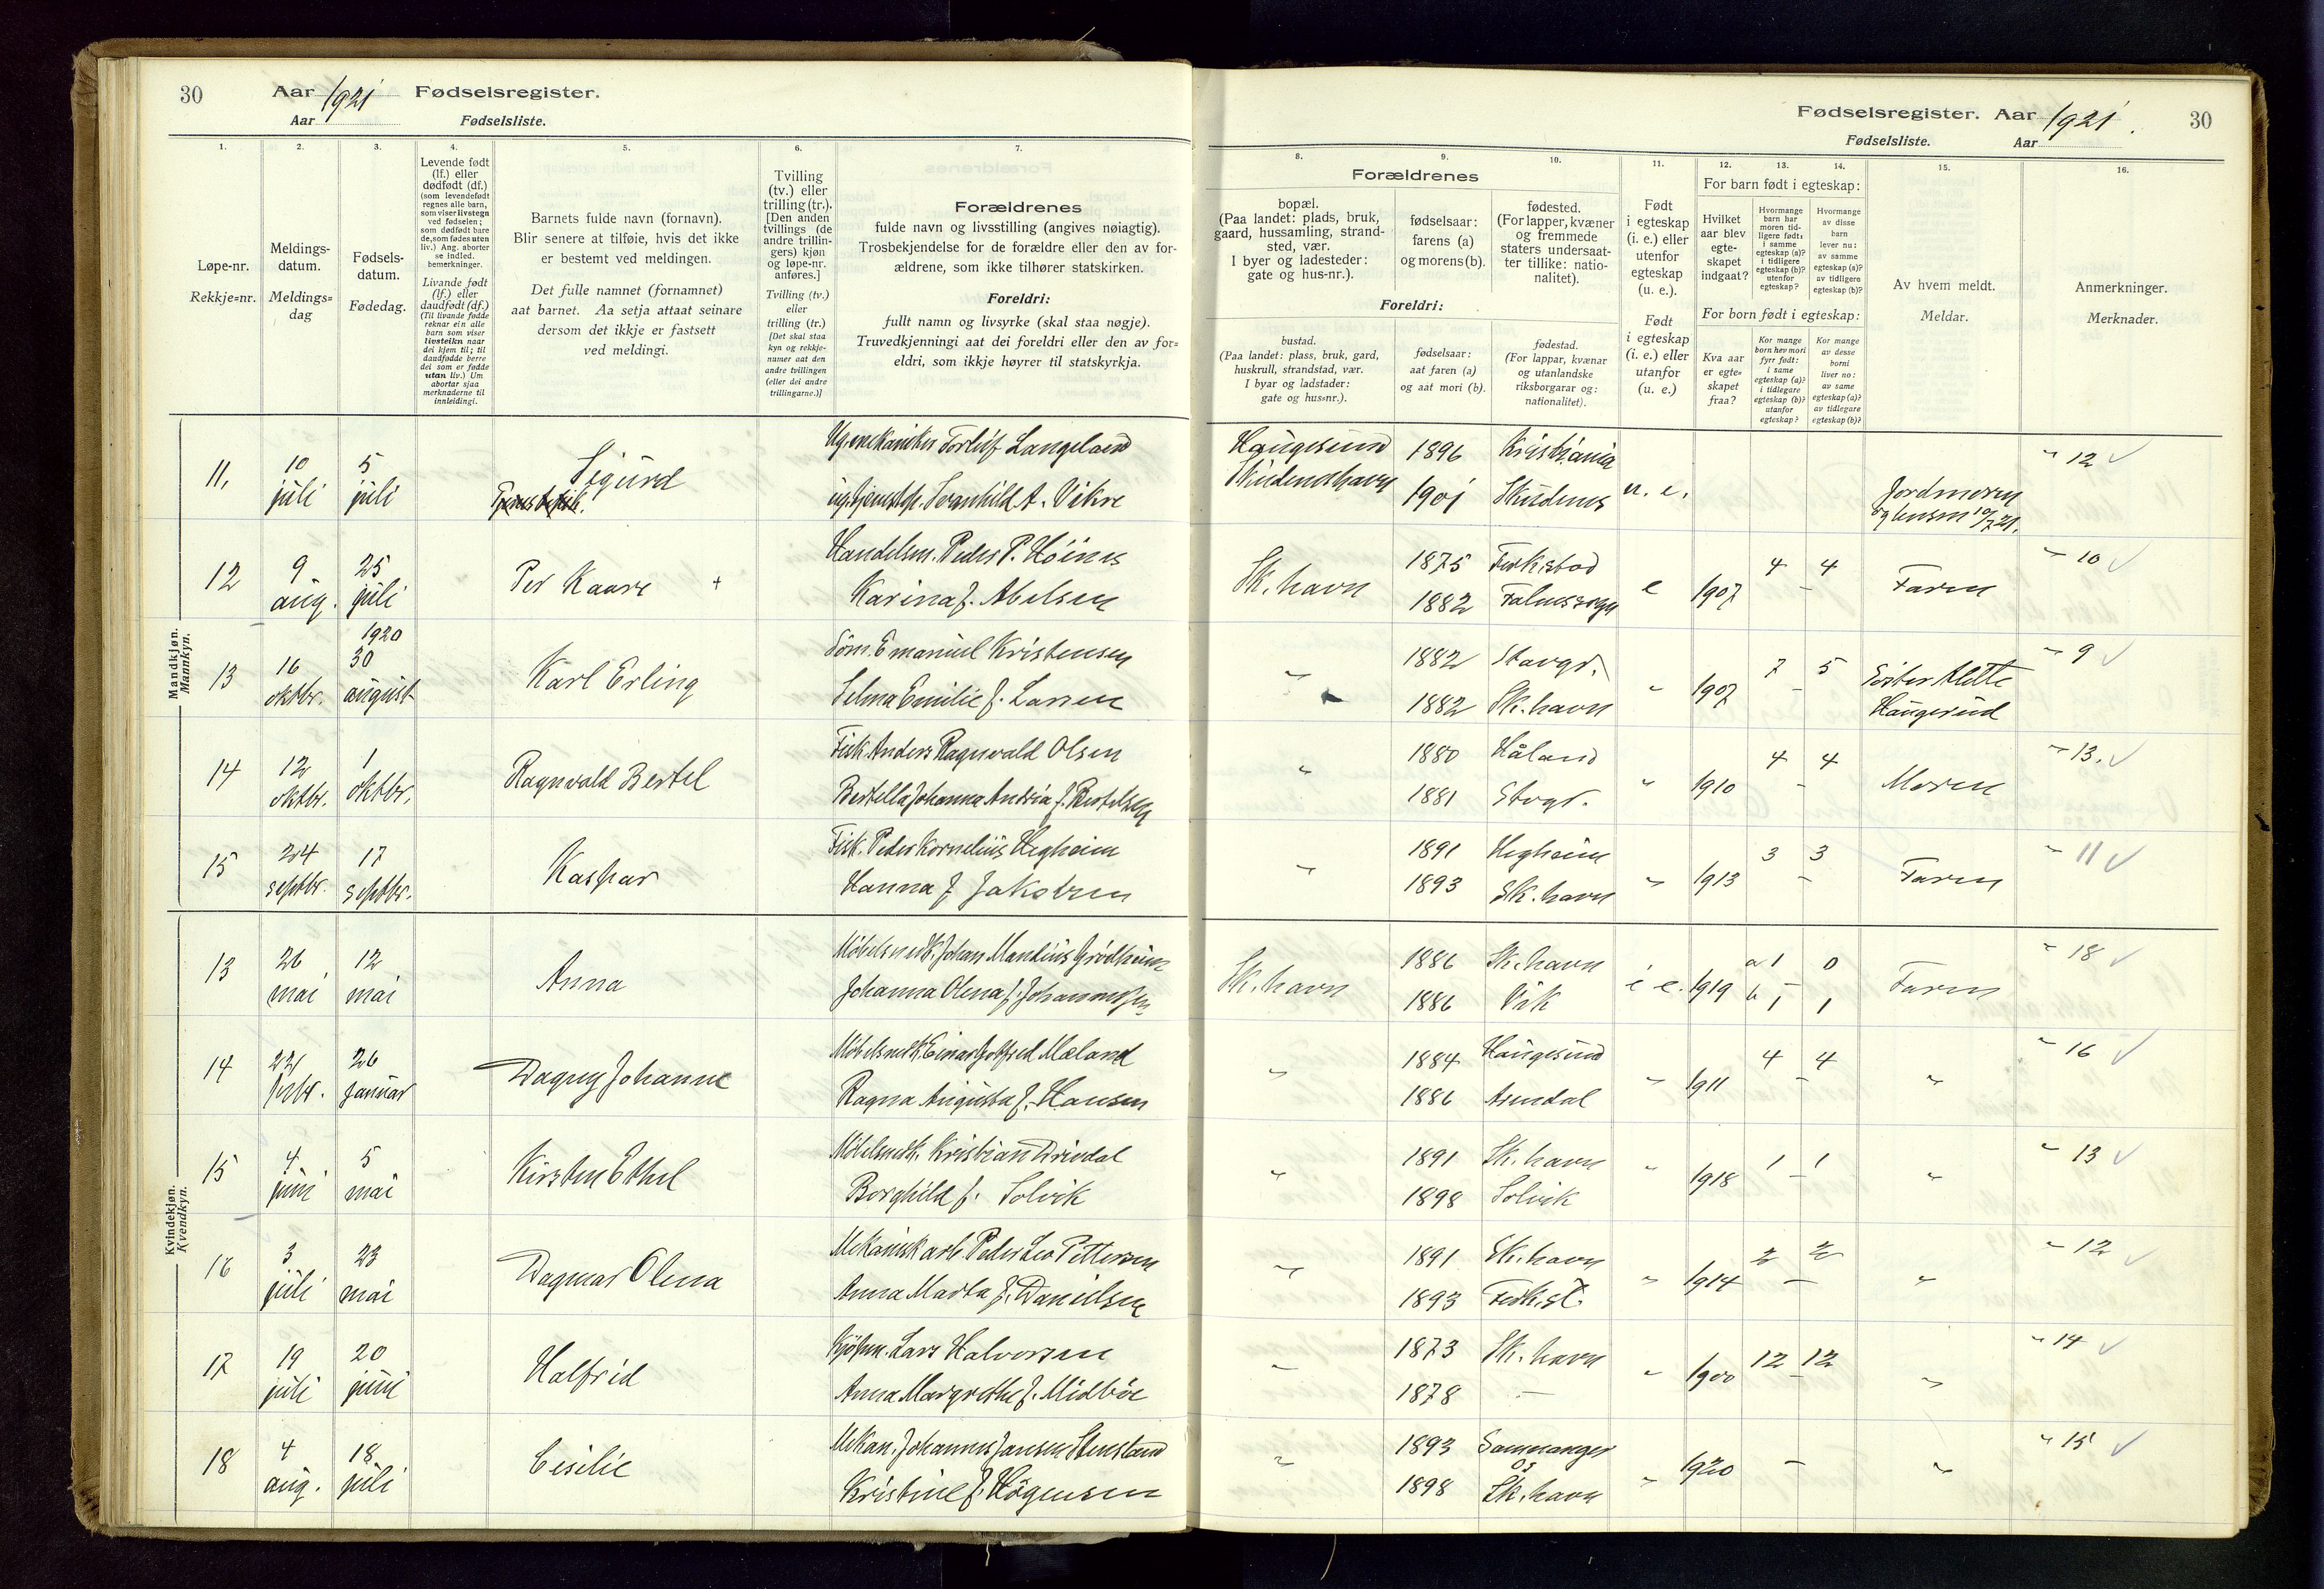 30
Aar 1921 Fødselsregister.
Aar Fødselsliste.
1.
2.
3.
4.
5.
6.
7.
Løpe-nr.
Rekkje=nr.
Meldings-
datum.
Meldings=
dag
Fødsels-
datum.
Fødedag.
Levende født
(lf.) eller
dødfødt (df.)
(som levendefødt
regnes alle barn,
som viser livstegn
ved fødselen;
som dødfødt bare
de, som fødes uten
liv.) Ang. aborter
se indled.
bemerkninger.
Livande født
(lf.) eller
daudfødt (df.)
(Til livande fødde
reknar ein alle
barn som viser
livsteikn naar
dei kjem til; til
daudfødde berre
dei som er fødde
utan liv.) Um
abortar sjaa
merknaderne til
innleidingi.
Barnets fulde navn (fornavn).
Blir senere at tilføie, hvis det ikke
er bestemt ved meldingen.
Det fulle namnet (fornamnet)
aat barnet. Aa setja attaat seinare
dersom det ikkje er fastsett
ved meldingi.
Tvilling
(tv.) eller
trilling (tr.).
[Den anden
tvillings (de
andre trillin-
gers) kjøn
og løpe-nr.
anføres.]
Tvilling (tv.)
eller
trilling (tr.)
[Det skal staa
kyn og rekkje-
numer aat den
andre tvillingen
(eller dei andre
trillingarne.)]
Forældrenes
fulde navn og livsstilling (angives nøiagtig).
Trosbekjendelse for de forældre eller den av for-
ældrene, som ikke tilhører statskirken.
Foreldri:
fullt namn og livsyrke (skal staa nøgje).
Truvedkjenningi aat dei foreldri eller den av for=
eldri, som ikkje høyrer til statskyrkja.
Mandkjøn.
Mannkyn.
11. 10 juli 5 juli Sigurd
Ug. mekaniker Torleif Langeland
ug. tjenestep. Svanhild A. Vikre
12 9 aug. 25 juli Per Kaare +
Handelsm. Peder P. Höines
Karina f. Abelsen
13 16 oktbr. 1920 30 august Karl Erling
Söm. Emanuel Kristensen
Selma Emilie f. Larsen
14 12 oktbr. 1 oktbr. Ragnvald Bertel
Fisk. Anders Ragnvald Olsen
Bertella Johanna Andria f. Bertelsen
15 24 septbr. 17 septbr. Kaspar
Fisk. Peder Kornelius Hegheim
Hanna f. Jakobsen
Kvindekjøn.
Kvendkyn.
13 26 mai 12 mai Anna
Möbelsnedk. Johan Mandius Grödheim
Johanna Olena f. Johannessen
14 22 febr. 26 januar Dagny Johanne
Möbelsnedk. Einar Gotfred Mæland
Ragna Augusta f. Hansen
15 4 juni 5 mai Kirsten Ethel
Möbelsnedk. Kristian Drivdal
Borghild f. Solvik
16 3 juli 23 mai Dagmar Olena
Mekanisk arb. Peder Leo Pettersen
Anna Marta f. Danielsen
17 19 juli 20 juni Halfrid
Kjöpm. Lars Halvorsen
Anna Margrethe f. Midböe
18 4 aug. 18 juli Cecilie
Mekan. Johannes Jansen Stensland
Kristine f. Högensen
Fødselsregister. Aar 1921. 30
Fødselsliste. Aar
8.
9.
10.
11.
12.
13.
14.
15.
16.
Forældrenes
bopæl.
(Paa landet: plads, bruk,
gaard, hussamling, strand-
sted, vær.
I byer og ladesteder:
gate og hus-nr.).
fødselsaar:
farens (a)
og morens (b).
fødested.
(For lapper, kvæner
og fremmede
staters undersaat-
ter tillike: natio-
nalitet).
Foreldri:
bustad.
(Paa landet: plass, bruk, gard,
huskrull, strandstad, vær.
I byar og ladstader:
gate og hus=nr.).
fødselsaar:
aat faren (a)
og aat mori (b).
fødestad.
(For lappar, kvænar
og utanlandske
riksborgarar og:
nationalitet).
Født
i egteskap
(i. e.) eller
utenfor
egteskap
(u. e.).
Født
i egteskap
(i. e.) eller
utanfor
egteskap
(u. e.)
For barn født i egteskap:
Hvilket
aar blev
egte-
skapet
indgaat?
Hvormange
barn har
moren tid-
ligere født:
i samme
egteskap (a)?
i tidligere
egteskap (b)?
utenfor
egteskap?
Hvormange
av disse
barn
lever nu:
av samme
egteskap (a)?
av tidligere
egteskap (b)?
For born født i egteskap:
Kva aar
er egte=
skapet
fraa?
Kor mange
born hev mori
fyrr født:
i same
egteskap (a)?
i tidlegare
egteskap (b)?
utanfor
egteskap?
Kor mange
av desse
borni
liver no:
av same
egteskap (a)?
av tidlegare
egteskap (b)?
Av hvem meldt.
Meldar.
Anmerkninger.
Merknader.
Haugesund 1896 Kristiania " 12 ✓
Skudeneshavn 1901 Skudenes u. e. Jordmoren
Sk. havn 1875 Ferkstad e 1907 4 4 Faren " 10 ✓
1882 Falnes sogn
" 1882 Stavgr. " 1907 7 5 Söster Alette Haugesund " 9 ✓
1882 Sk. havn
" 1880 Håland " 1910 4 4 Moren " 13. ✓
1881 Stvgr.
" 1891 Hegheim " 1913 3 3 Faren " 11 ✓
1893 Sk. havn
Sk. havn 1886 Sk. havn i e. 1919 a 1 0 Faren " 18 ✓
1886 Vik b 1 1
" 1884 Haugesund " 1911 4 4 " " 16 ✓
1886 Arendal
" 1891 Sk. havn " 1918 1 1 " " 13 ✓
1898 Solvik
" 1891 Sk. havn " 1914 2 2 " " 12 ✓
1893 Ferkst.
" 1873 Sk. havn " 1900 12 12 " " 14 ✓
1878 —
" 1893 Samnanger " 1920 — " " 15 ✓
Os
1898 Sk. havn